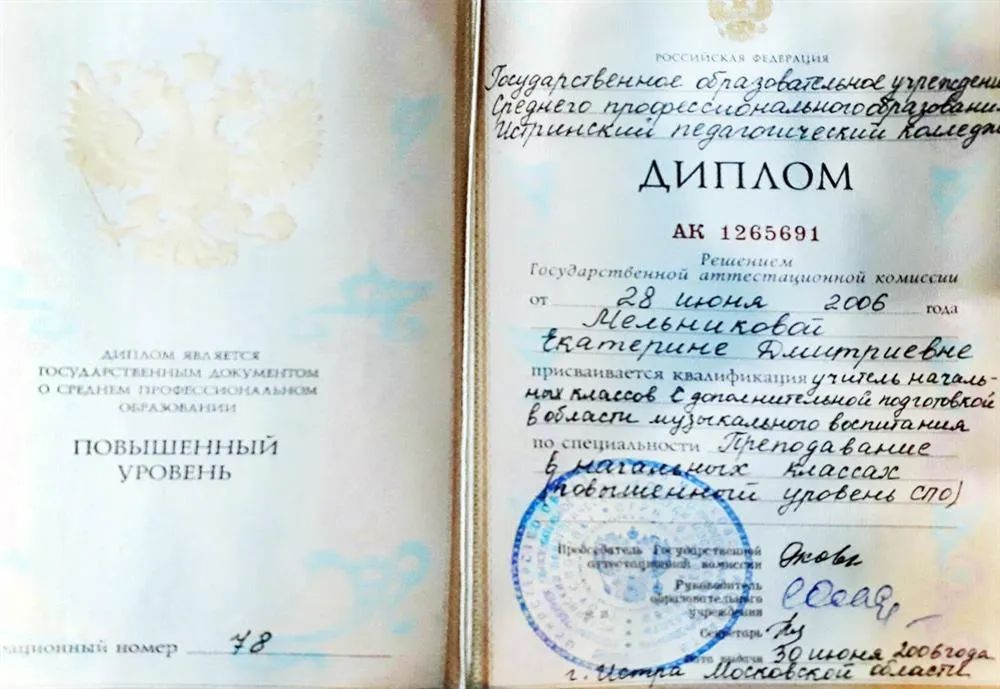 ДИПЛОМ ЯВЛЯЕТСЯ
ГОСУДАРСТВЕННЫМ ДОКУМЕНТОМ
О СРЕДНЕМ ПРОФЕССИОНАЛЬНОМ
ОБРАЗОВАНИИ
ПОВЫШЕННЫЙ
УРОВЕНЬ
ационный номер 78
РОССИЙСКАЯ ФЕДЕРАЦИЯ
Государственное образовательное учреждени
Среднего профессионального образовани
Истринский педагогический коледж
ДИПЛОМ
АК 1265691
Решением
Государственной аттестационной комиссии
от 28 июня 2006 года
Мельниковой
Екатерине Дмитриевне
присваивается квалификация учитель началь-
ных классов с дополнительной подготовкой
в области музыкального воспитания
по специальности Преподавание
в начальных классах
(повышенный уровень СПО)
Председатель Государственной
аттестационной комиссии
Руководитель
образовательного
учреждения
Секретарь
Дата выдачи 30 июня 2006 года
г. Истра Московской области